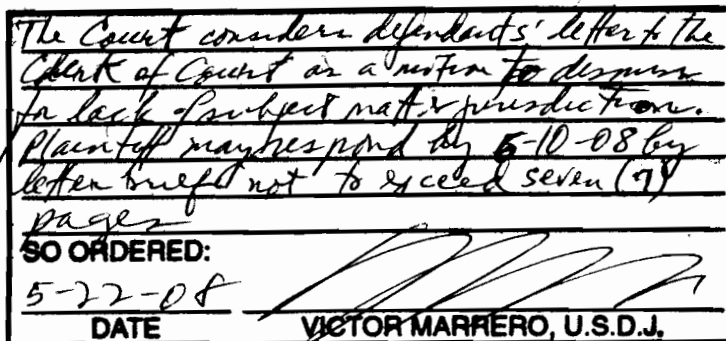 The Court considers defendants' letter to the
Clerk of Court as a motion to dismiss
for lack of subject matter jurisdiction.
Plaintiff may respond by 6-10-08 by
letter brief not to exceed seven (7)
pages
SO ORDERED:
5-22-08
DATE VICTOR MARRERO, U.S.D.J.